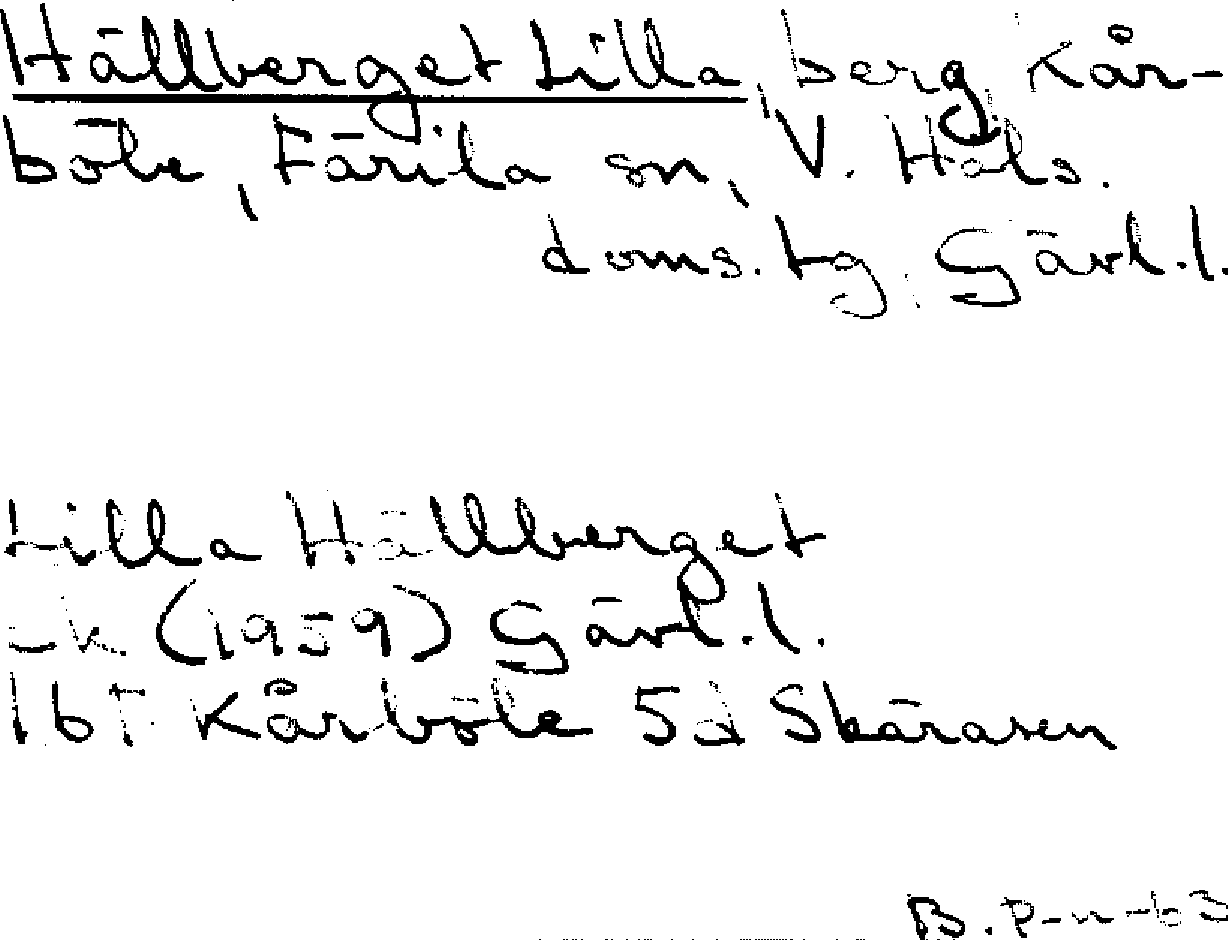 Hällberget Lilla, berg, Kår-
böle, Färila sn, V. Häls.
doms.tg, Gävl.l.
Lilla Hällberget
Ek (1959) Gävl.l.
16F Kårböle 5d Skäråsen
B.P-n -63